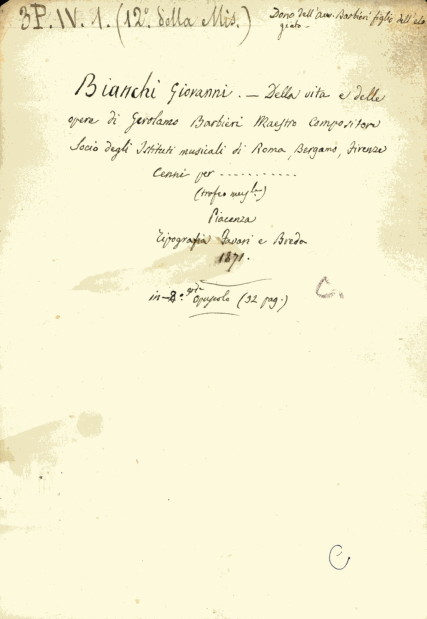 3P.IV.1.(12º. della Mis.)
Dono dell'avv. Barbieri figlio dell'elo
giato.
Bianchi Giovanni. — Della vita e delle
opere di Gerolamo Barbieri Maestro Compositore
Socio degli Istituti musicali di Roma, Bergamo, Firenze
Cenni per ..........
Piacenza
Tipografia Favari e Breda
1871.
in-8.º grde opuscolo (32 pag.)
C.
C